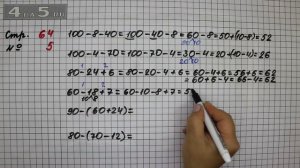 4 ПДБ
Стр. 64
№ 5
100-8-40=100-40-8=60-8=50+(10-8)=52
100-4-70=100-70-4=30-4=20+(10-4)=26
80-24+6=80-20-4+6=60-4+6=56+6=62
=60+6-4=66-4=62
60-18+7=60-10-8+7=5
10 8
90-(60+24)=
80-(70-12)=